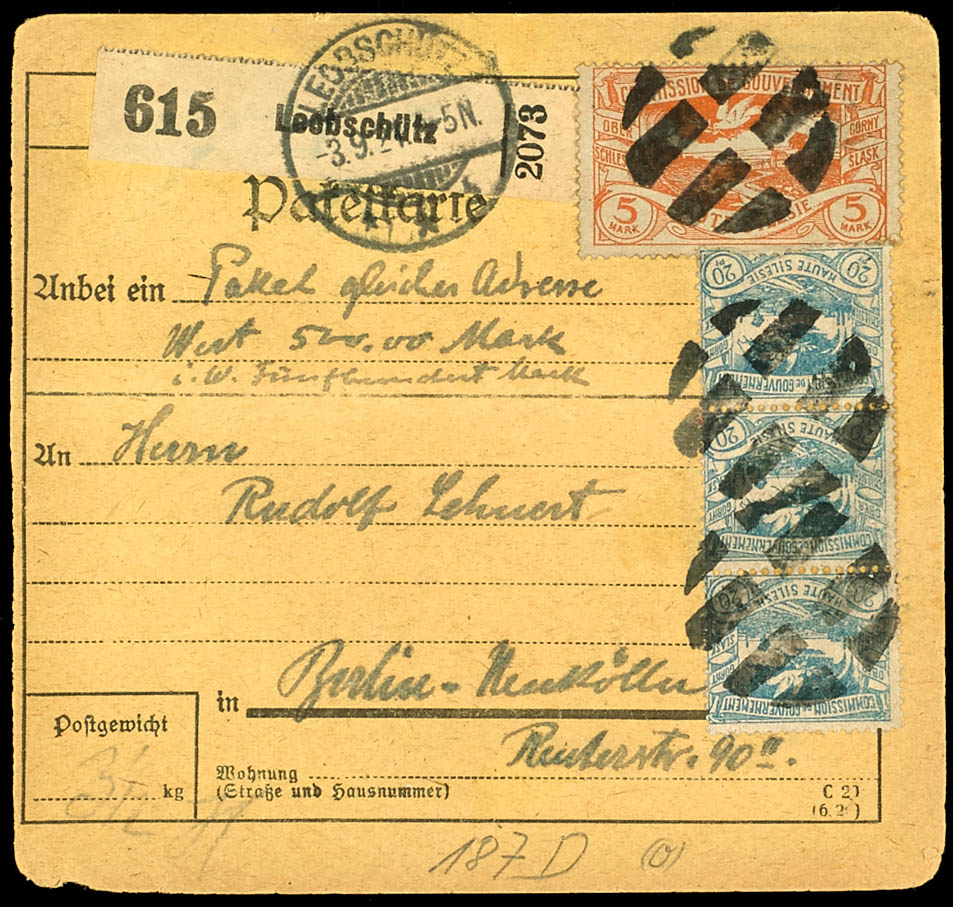 615 Leobschütz 2073
LEOBSCHÜTZ
-3.9.21. 5N.
COMMISSION DE GOUVERNEMENT
OBER GORNY
SCHLES ŚLĄSK
5 MARK 5 MARK
HAUTE SILESIE
Paketkarte
Anbei ein Paket gleicher Adresse
Wert 500,00 Mark
i. W. Fünfhundert Mark
An Herrn
Rudolf Lehnert
in Berlin-Neukölln
Reuterstr. 90II.
20 Pf HAUTE SILESIE 20 Pf
COMMISSION DE GOUVERNEMENT
20 HAUTE SILESIE 20
OBER
GORNY
COMMISSION DE GOUVERNEMENT
20 HAUTE SILESIE 20
ŚLĄSK OBER
GORNY
COMMISSION DE GOUVERNEMENT
Postgewicht
3½ kg
Wohnung
(Straße und Hausnummer)
C 2)
(6.2)
187 D (o)